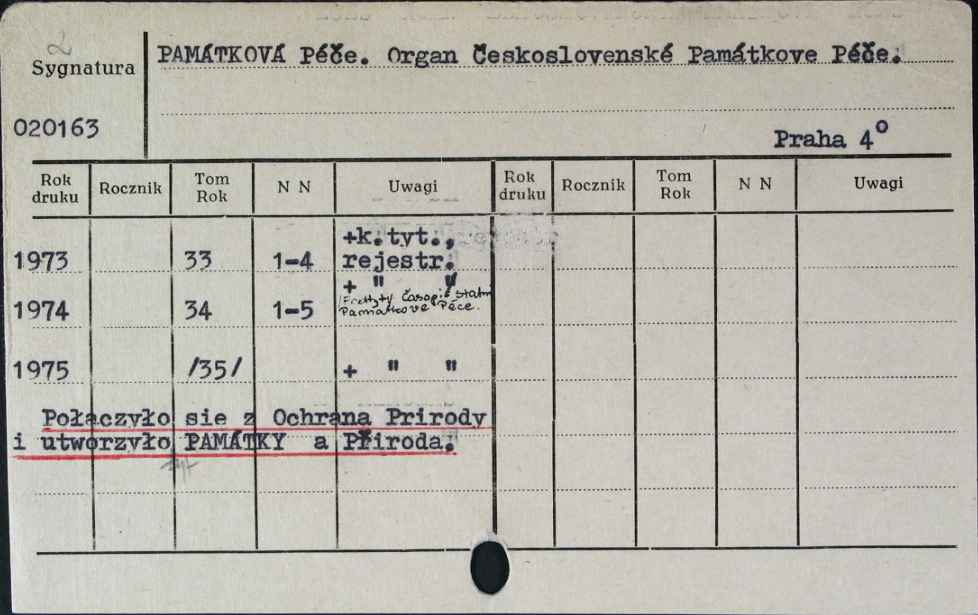 2
Sygnatura
020163
PAMÁTKOVÁ Péče. Organ Československé Památkove Péče.
Praha 4°
Rok druku Rocznik Tom Rok N N Uwagi Rok druku Rocznik Tom Rok N N Uwagi
+k.tyt.,
1973 33 1-4 rejestr.
+ " "
časop. státní
1974 34 1-5 Pamiatkove Péce.
1975 /35/ + " "
Połączyło sie z Ochrana Prirody
i utworzyło PAMÁTKY a Příroda.